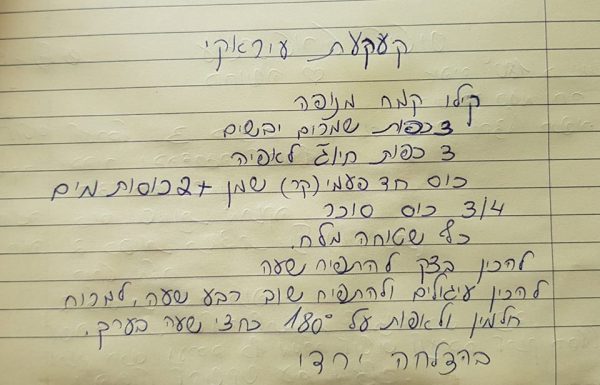 קעקעת עיראקי
קילו קמח מנופה
3 כפות שמרים יבשים
3 כפות חיוג לאפיה
כוס חד פעמי (קר) שמן + 2 כוסות מים
3/4 כוס סוכר
כף שטוחה מלח.
להכין בצק להתפיח שעה
להכין עיגולים ולהתפיח שוב רבע שעה, למרוח
חלמון ולאפות על 180° כחצי שעה בערך.
בהצלחה ירדי